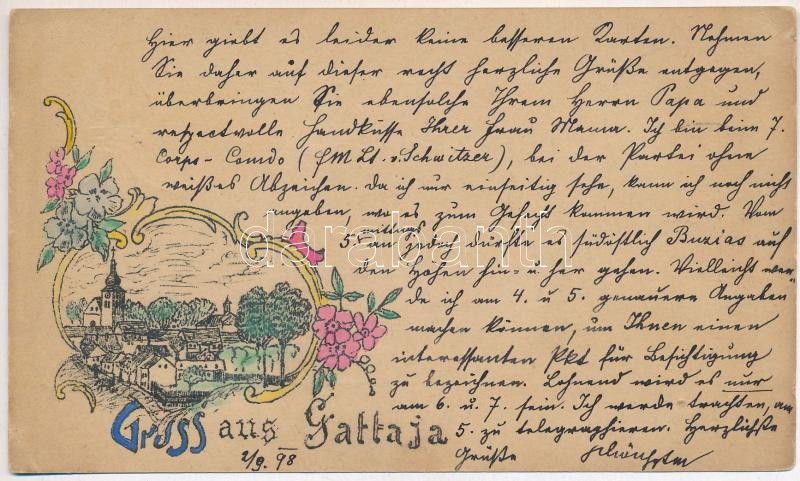 Hier giebt es leider keine besseren Karten. Nehmen
Sie daher auf dieser recht herzliche Grüße entgegen,
überbringen Sie ebensolche Ihrem Herrn Papa und
respectvolle Handküsse Ihrer Frau Mama. Ich bin beim 7.
Corps-Comdo (FMLt. v. Schwitzer), bei der Partei ohne
weißes Abzeichen. Da ich nur einseitig sehe, kann ich noch nicht
angeben, wo es zum Gefecht kommen wird. Vom
5. mittags an jedoch dürfte es südöstlich Buzias auf
den Höhen hin- u. her gehen. Vielleicht wer-
de ich am 4. u 5. genauere Angaben
machen können, um Ihnen einen
interessanten Pkt für Besichtigung
zu bezeichnen. Lohnend wird es nur
am 6. u. 7. sein. Ich werde trachten, am
5. zu telegraphieren. Herzlichste
Grüße
Gruss aus Gattaja
2/9. 98
darabanth